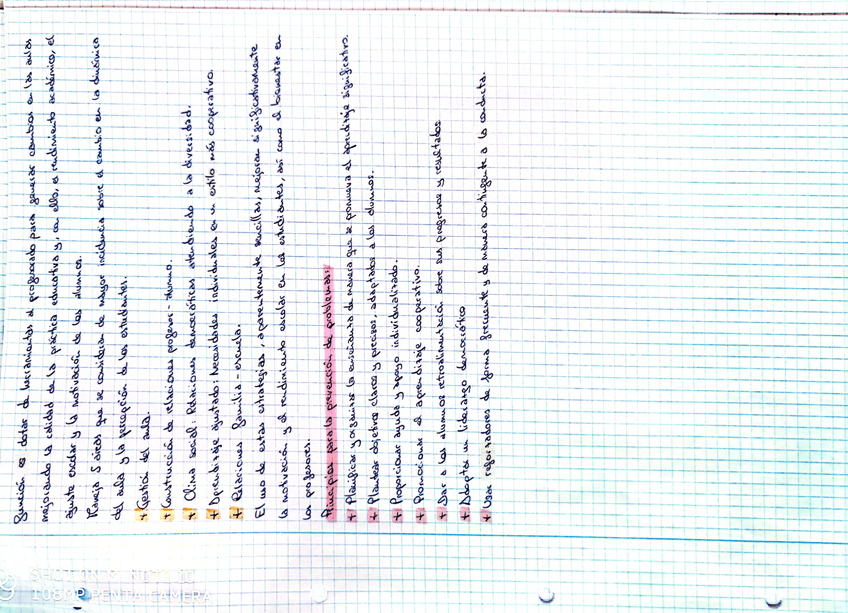 función es dotar de herramientas al profesorado para generar cambios en las aulas
mejorando la calidad de la práctica educativa y, con ello, el rendimiento académico, el
ajuste escolar y la motivación de los alumnos.
Maneja 5 áreas que se consideran de mayor incidencia sobre el cambio en la dinámica
del aula y la percepción de los estudiantes.
+ Gestión del aula.
+ Construcción de relaciones profesor-alumno.
+ Clima social: Relaciones democráticas atendiendo a la diversidad.
+ Aprendizaje ajustado: Necesidades individuales en un estilo más cooperativo.
+ Relaciones familia-escuela.
El uso de estas estrategias, aparentemente sencillas, mejoran significativamente
la motivación y el rendimiento escolar en los estudiantes, así como el bienestar en
los profesores.
Principios para la prevención de problemas:
+ Planificar y organizar la enseñanza de manera que se promueva el aprendizaje significativo.
+ Plantear objetivos claros y precisos, adaptados a los alumnos.
+ Proporcionar ayuda y apoyo individualizado.
+ Promocionar el aprendizaje cooperativo.
+ Dar a los alumnos retroalimentación sobre sus progresos y resultados
+ Adoptar un liderazgo democrático
+ Usar reforzadores de forma frecuente y de manera contingente a la conducta.
SHOT ON MI NOTE 10
108MP PENTA CAMERA